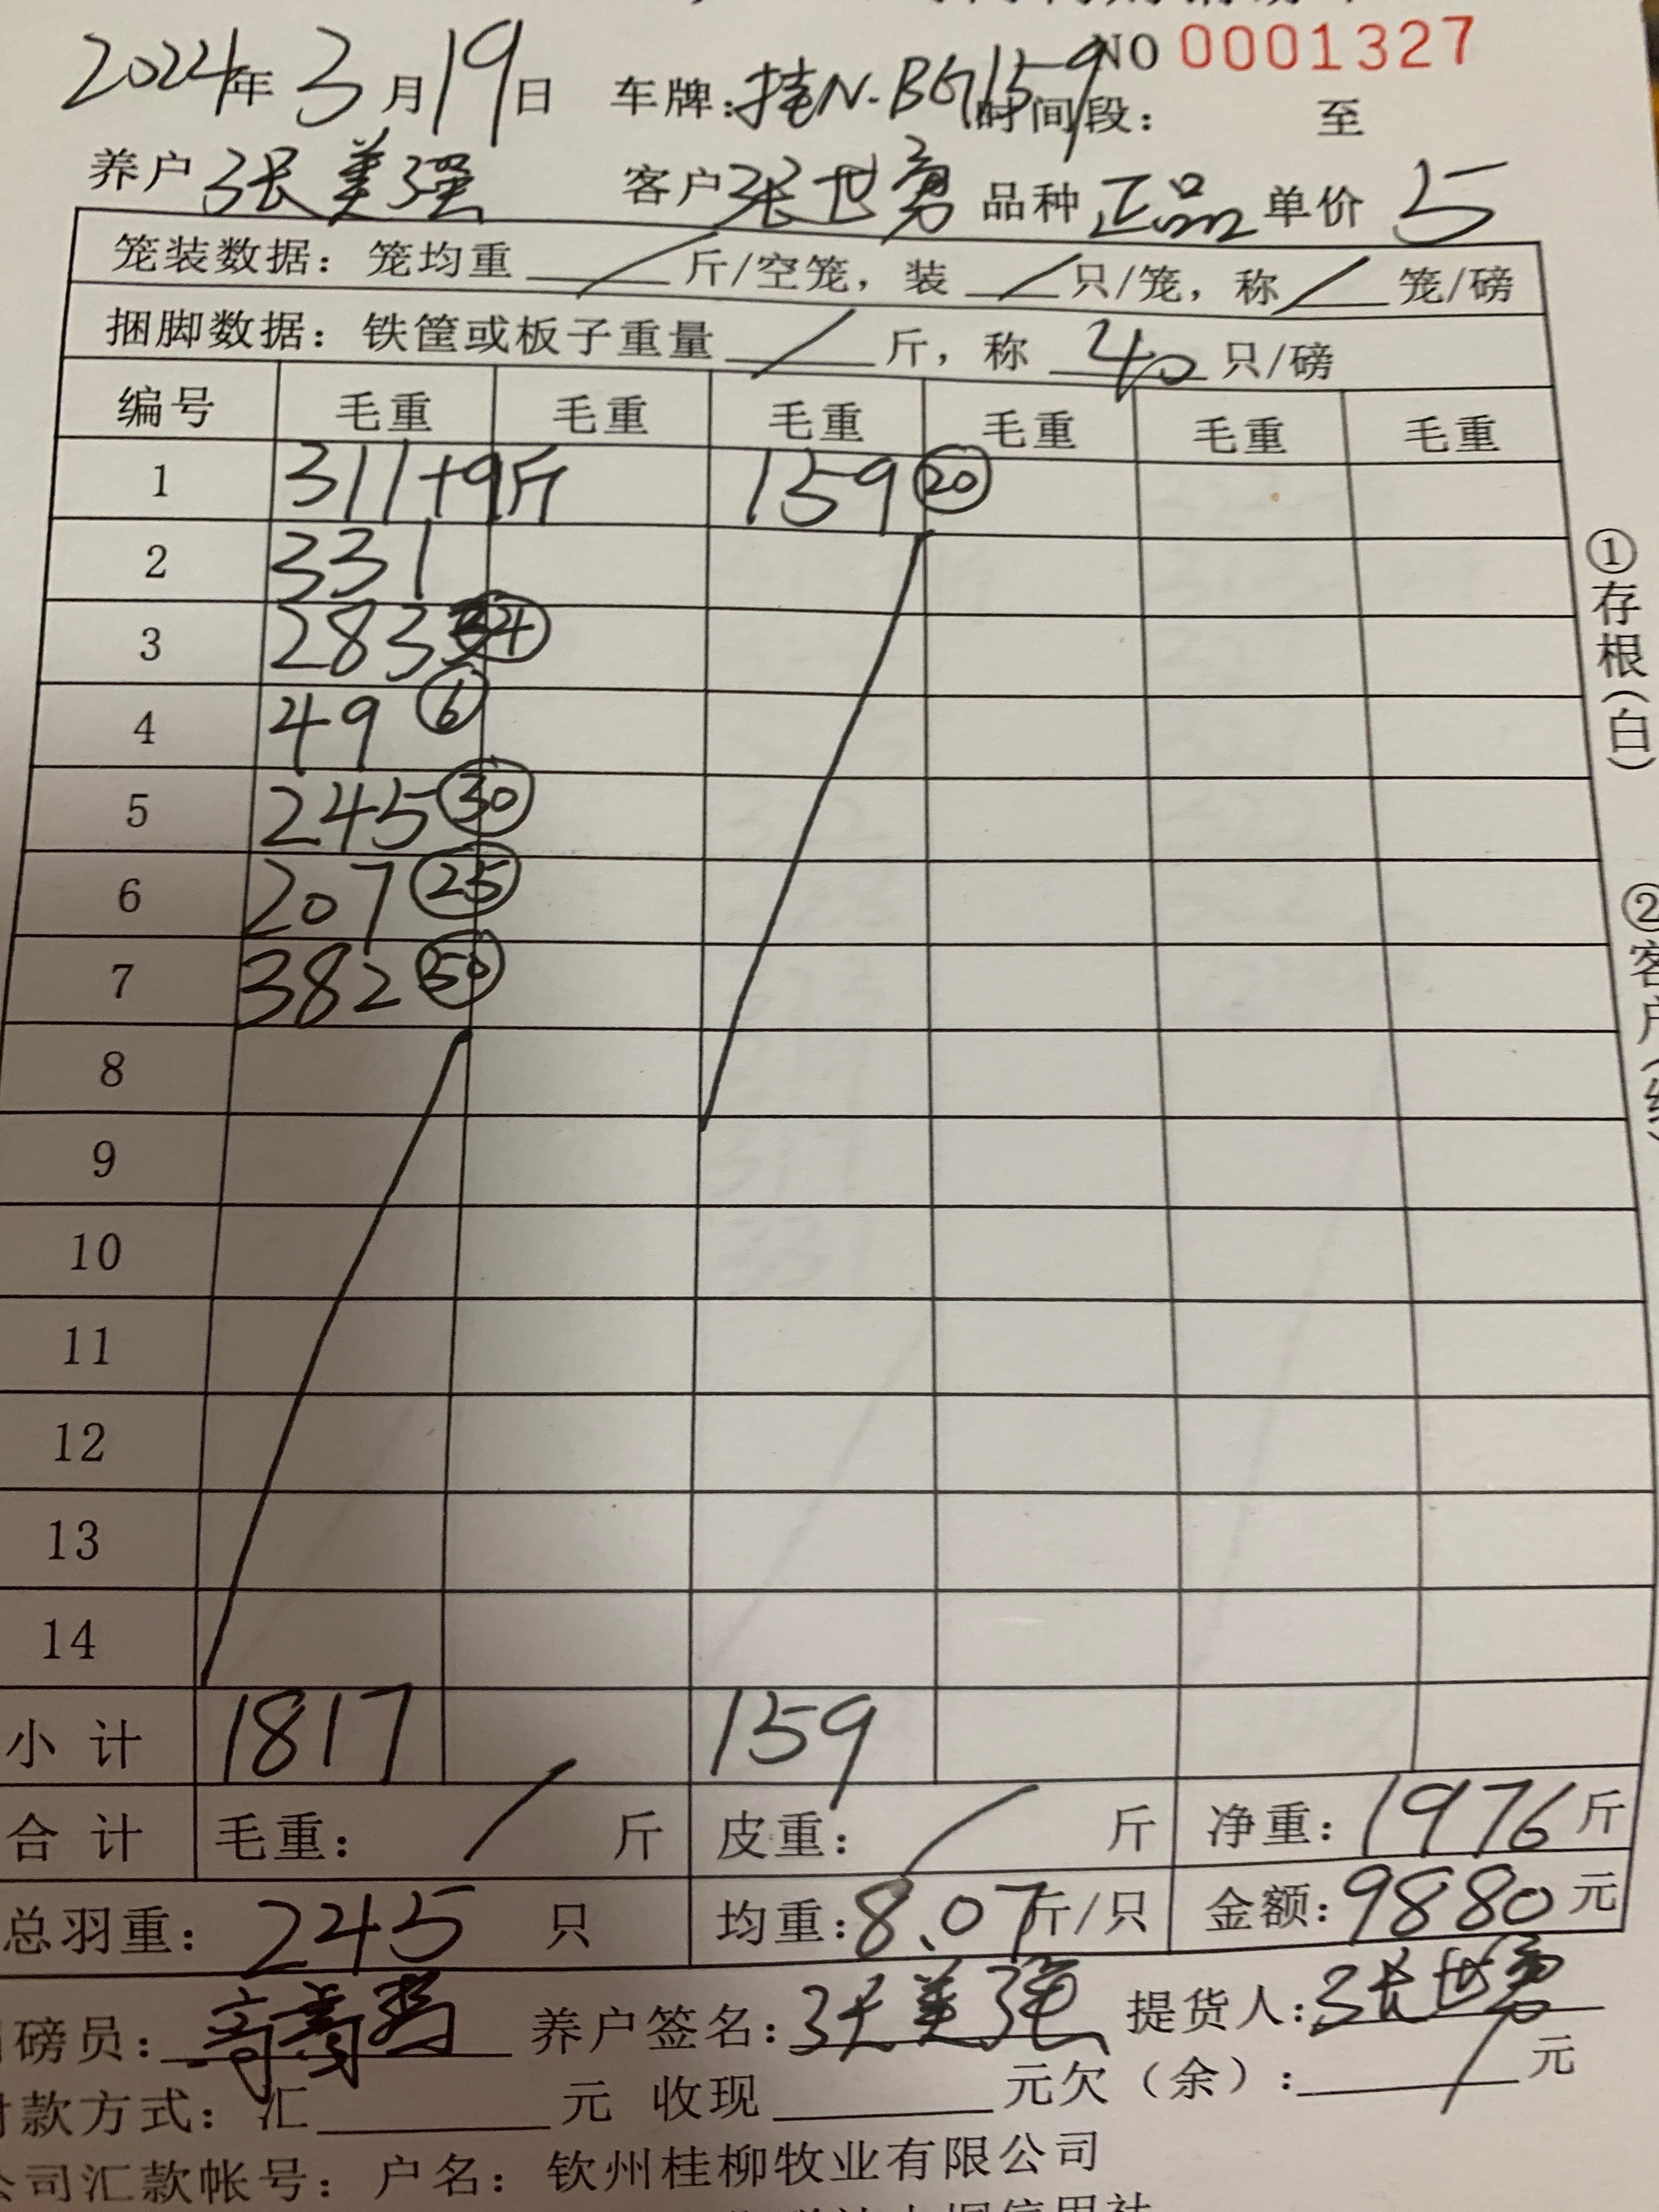 NO 0001327
2024年 3月19日 车牌:桂N-BG159 时间段: 至
养户 张美强 客户 张世勇 品种 正品 单价 5
笼装数据:笼均重 / 斤/空笼,装 / 只/笼,称 / 笼/磅
捆脚数据:铁筐或板子重量 / 斤,称 40 只/磅
编号 毛重 毛重 毛重 毛重 毛重 毛重
1 311+9斤 159 20
2 331
3 283 34
4 49 6
5 245 30
6 207 25
7 382 50
8
9
10
11
12
13
14
小计 1817 159
合计 毛重: / 斤 皮重: / 斤 净重:1976斤
总羽重:245 只 均重:8.07斤/只 金额:9880元
磅员: 养户签名:张美强 提货人:张世勇
付款方式:汇 元 收现 元欠(余): / 元
公司汇款帐号:户名:钦州桂柳牧业有限公司
信用社
①存根(白)
②客户(红)